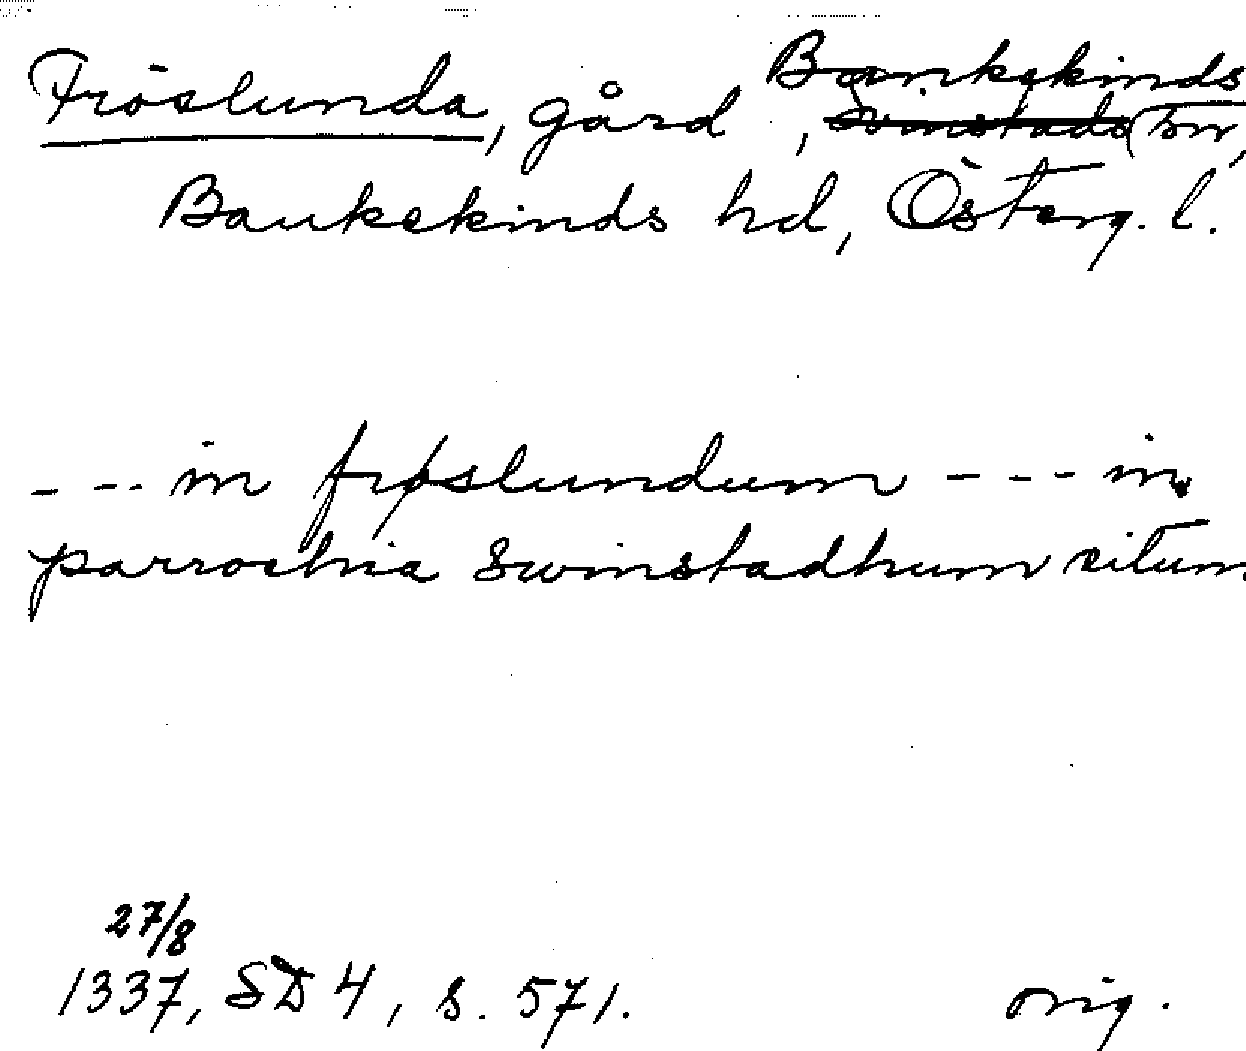 Bankekinds
Fröslunda, gård, Svinstads sn,
Bankekinds hd, Österg. l.
--- in frøslundum --- in
parrochia Swinstadhum situm
27/8
1337, SD 4, s. 571. orig.